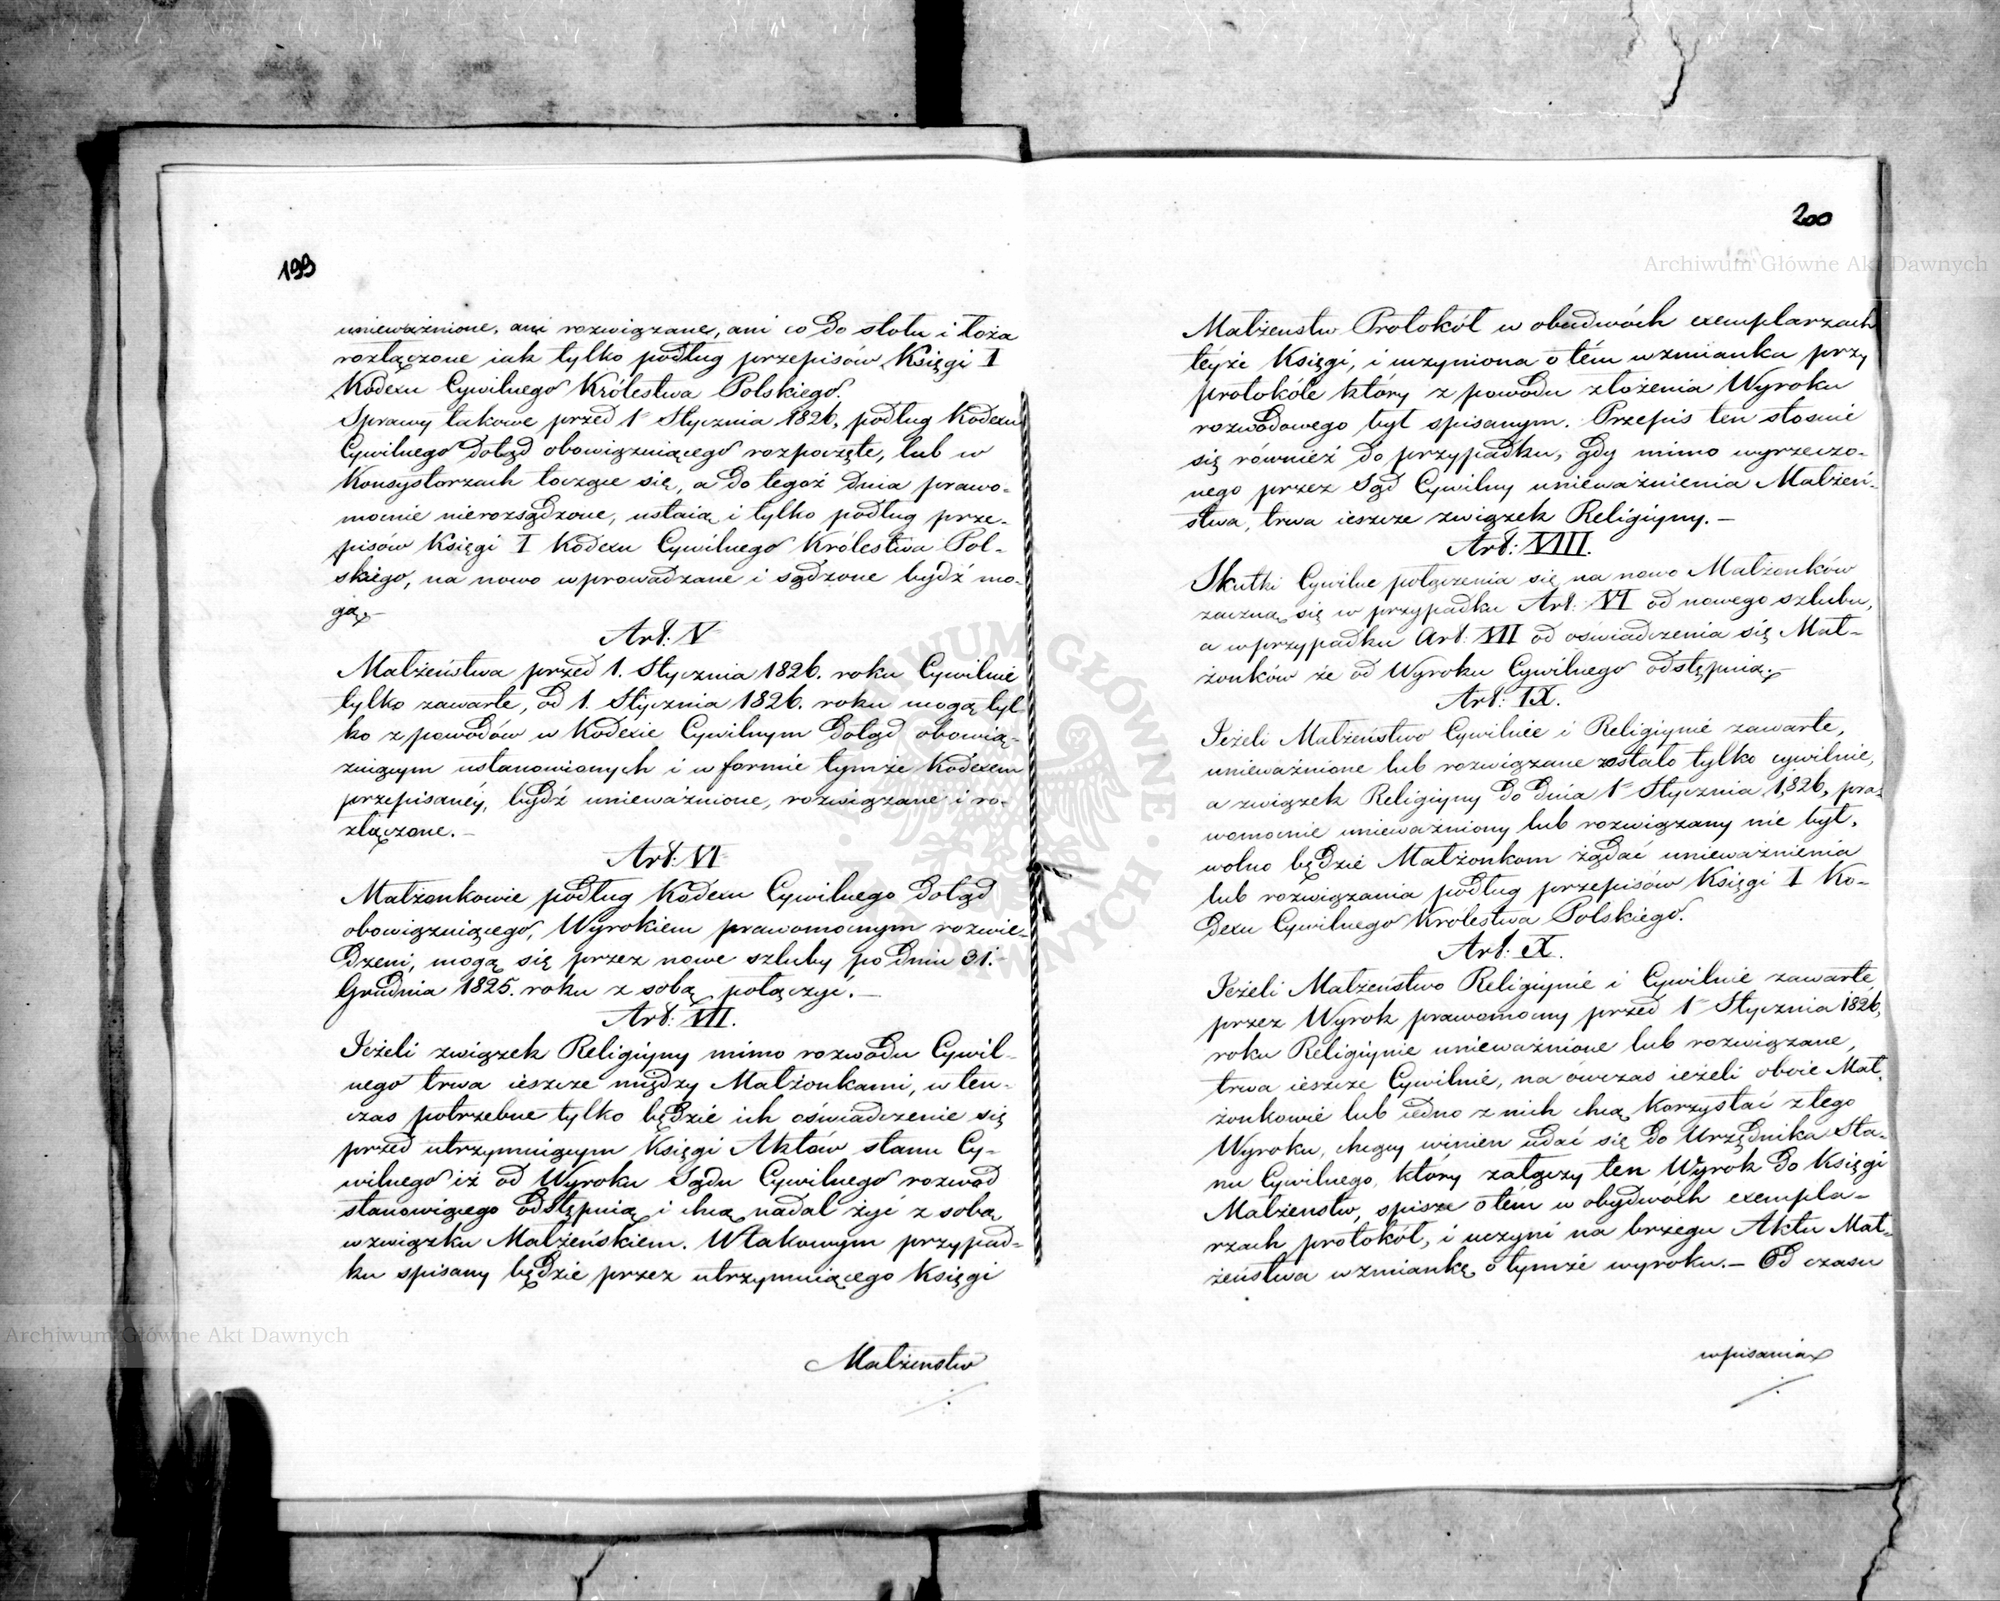 199
unieważnione, ani rozwiązane, ani co do stołu i łoża
rozłączone iak tylko podług przepisów Księgi I
Kodexu Cywilnego Królestwa Polskiego.
Sprawy takowe przed 1 Stycznia 1826, podług Kodexu
Cywilnego dotąd obowiązuiącego rozpoczęte, lub w
Konsystorzach toczące się, a do tegoż dnia prawo-
mocnie nierozsądzone, ustaią i tylko podług prze-
pisów Księgi I Kodexu Cywilnego Królestwa Pol-
skiego, na nowo wprowadzane i sądzone bydź mo-
gą.
Art: V
Małżeństwa przed 1. Stycznia 1826. roku Cywilnie
tylko zawarte, od 1. Stycznia 1826. roku mogą tyl
ko z powodów w Kodexie Cywilnym dotąd obowią-
zuiącym ustanowionych i w formie tymże Kodexem
przepisanéy, bydź unieważnione, rozwiązane i ro-
złączone.—
Art: VI
Małżonkowie podług Kodexu Cywilnego dotąd
obowiązuiącego, Wyrokiem prawomocnym rozwie-
dzeni, mogą się przez nowe szluby po dniu 31.
Grudnia 1825. roku z sobą połączyć.—
Art: VII.
Jeżeli związek Religiyny mimo rozwodu Cywil-
nego trwa ieszcze między Małżonkami, w ten-
czas potrzebne tylko będzie ich oświadczenie się
przed utrzymuiącym Księgi Aktów stanu Cy-
wilnego iż od Wyroku Sądu Cywilnego rozwód
stanowiącego odstępuią i chcą nadal żyć z sobą
w związku Małżeńskiem. W takowym przypad-
ku spisany będzie przez utrzymuiącego Księgi
Małżenstw
200
Małżenstw Protokół w obudwóch exemplarzach
teyże Księgi, i uczyniona o tém wzmianka przy
protokóle który z powodu złożenia Wyroku
rozwodowego był spisanym. Przepis ten stosuie
się również do przypadku, gdy mimo wyrzeczo-
nego przez Sąd Cywilny unieważnienia Małżeń-
stwa, trwa ieszcze związek Religiyny.—
Art: VIII.
Skutki Cywilne połączenia się na nowo Małżonków
zaczną się w przypadku Art: VI od nowego szlubu,
a w przypadku Art: VII od oświadczenia się Mał-
żonków że od Wyroku Cywilnego odstępuią.—
Art: IX.
Jeżeli Małżeństwo Cywilnie i Religiynie zawarte,
unieważnione lub rozwiązane zostało tylko cywilnie,
a związek Religiyny do dnia 1 Stycznia 1826, pra-
womocnie unieważniony lub rozwiązany nie był,
wolno będzie Małżonkom żądać unieważnienia
lub rozwiązania podług przepisów Księgi I Ko-
dexu Cywilnego Krolestwa Polskiego.
Art: X.
Jeżeli Małżeństwo Religiynie i Cywilnie zawarte
przez Wyrok prawomocny przed 1 Stycznia 1826,
roku Religiynie unieważnione lub rozwiązane,
trwa ieszcze Cywilnie, na owczas ieżeli oboie Mał-
żonkowie lub iedno z nich chcą korzystać z tego
Wyroku, chcący winien udać się do Urzędnika Sta-
nu Cywilnego, który załączy ten Wyrok do Księgi
Małżenstw, spisze o tém w obydwóch exempla-
rzach protokół, i uczyni na brzegu Aktu Mał-
żeństwa wzmiankę o tymże wyroku.— Od czasu
wpisania
Archiwum Główne Akt Dawnych
Archiwum Główne Akt Dawnych